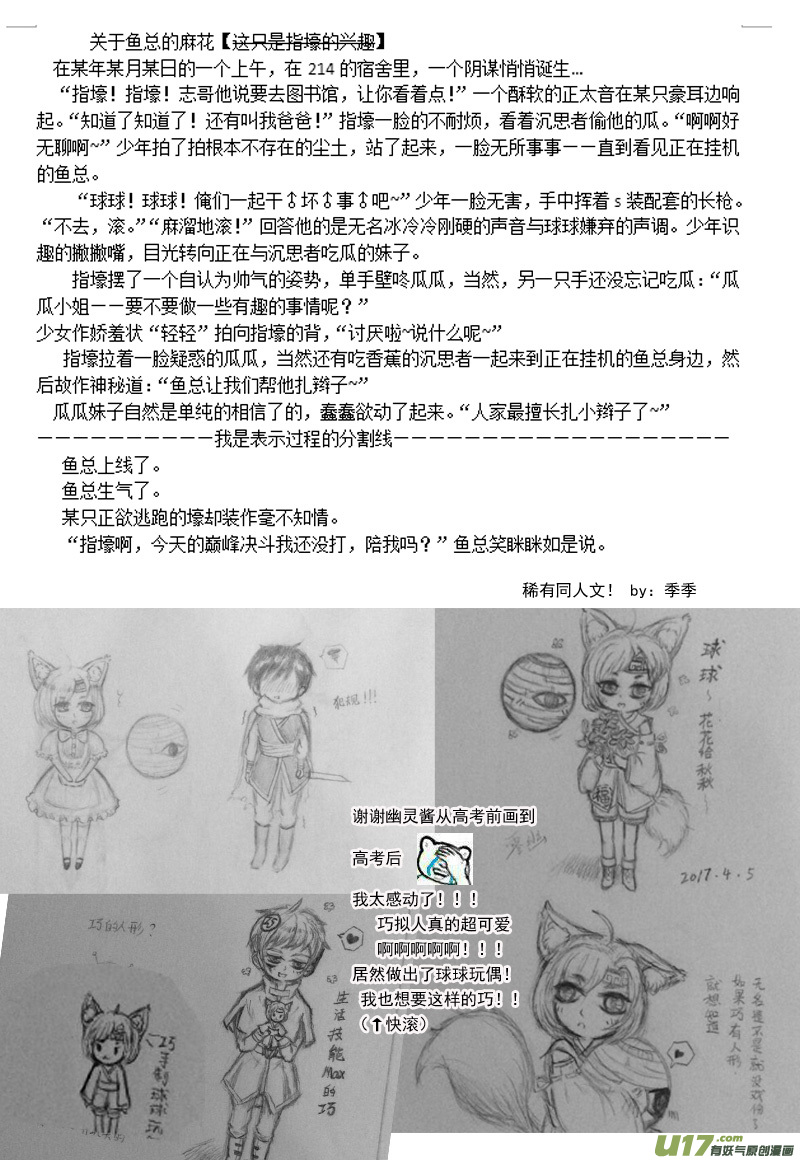 关于鱼总的麻花【这只是指壕的兴趣】
在某年某月某日的一个上午，在 214 的宿舍里，一个阴谋悄悄诞生...
“指壕！指壕！志哥他说要去图书馆，让你看着点！”一个酥软的正太音在某只豪耳边响
起。“知道了知道了！还有叫我爸爸！”指壕一脸的不耐烦，看着沉思者偷他的瓜。“啊啊好
无聊啊~”少年拍了拍根本不存在的尘土，站了起来，一脸无所事事——直到看见正在挂机
的鱼总。
“球球！球球！俺们一起干♂坏♂事♂吧~”少年一脸无害，手中挥着 s 装配套的长枪。
“不去，滚。”“麻溜地滚！”回答他的是无名冰冷冷刚硬的声音与球球嫌弃的声调。少年识
趣的撇撇嘴，目光转向正在与沉思者吃瓜的妹子。
指壕摆了一个自认为帅气的姿势，单手壁咚瓜瓜，当然，另一只手还没忘记吃瓜：“瓜
瓜小姐——要不要做一些有趣的事情呢？”
少女作娇羞状“轻轻”拍向指壕的背，“讨厌啦~说什么呢~”
指壕拉着一脸疑惑的瓜瓜，当然还有吃香蕉的沉思者一起来到正在挂机的鱼总身边，然
后故作神秘道：“鱼总让我们帮他扎辫子~”
瓜瓜妹子自然是单纯的相信了的，蠢蠢欲动了起来。“人家最擅长扎小辫子了~”
——————————我是表示过程的分割线———————————————————
鱼总上线了。
鱼总生气了。
某只正欲逃跑的壕却装作毫不知情。
“指壕啊，今天的巅峰决斗我还没打，陪我吗？”鱼总笑眯眯如是说。
稀有同人文！ by：季季
犯规!!!
球球~花花给秋秋~
漫幽
2017.4.5
谢谢幽灵酱从高考前画到
高考后
我太感动了！！！
巧拟人真的超可爱
啊啊啊啊啊！！！
居然做出了球球玩偶！
我也想要这样的巧！！
（↑快滚）
巧的人形?
巧手制球球玩~
生活技能Max的巧
无名是不是就没戏份了
如果巧有人形.
就想知道
U17.com
有妖气原创漫画